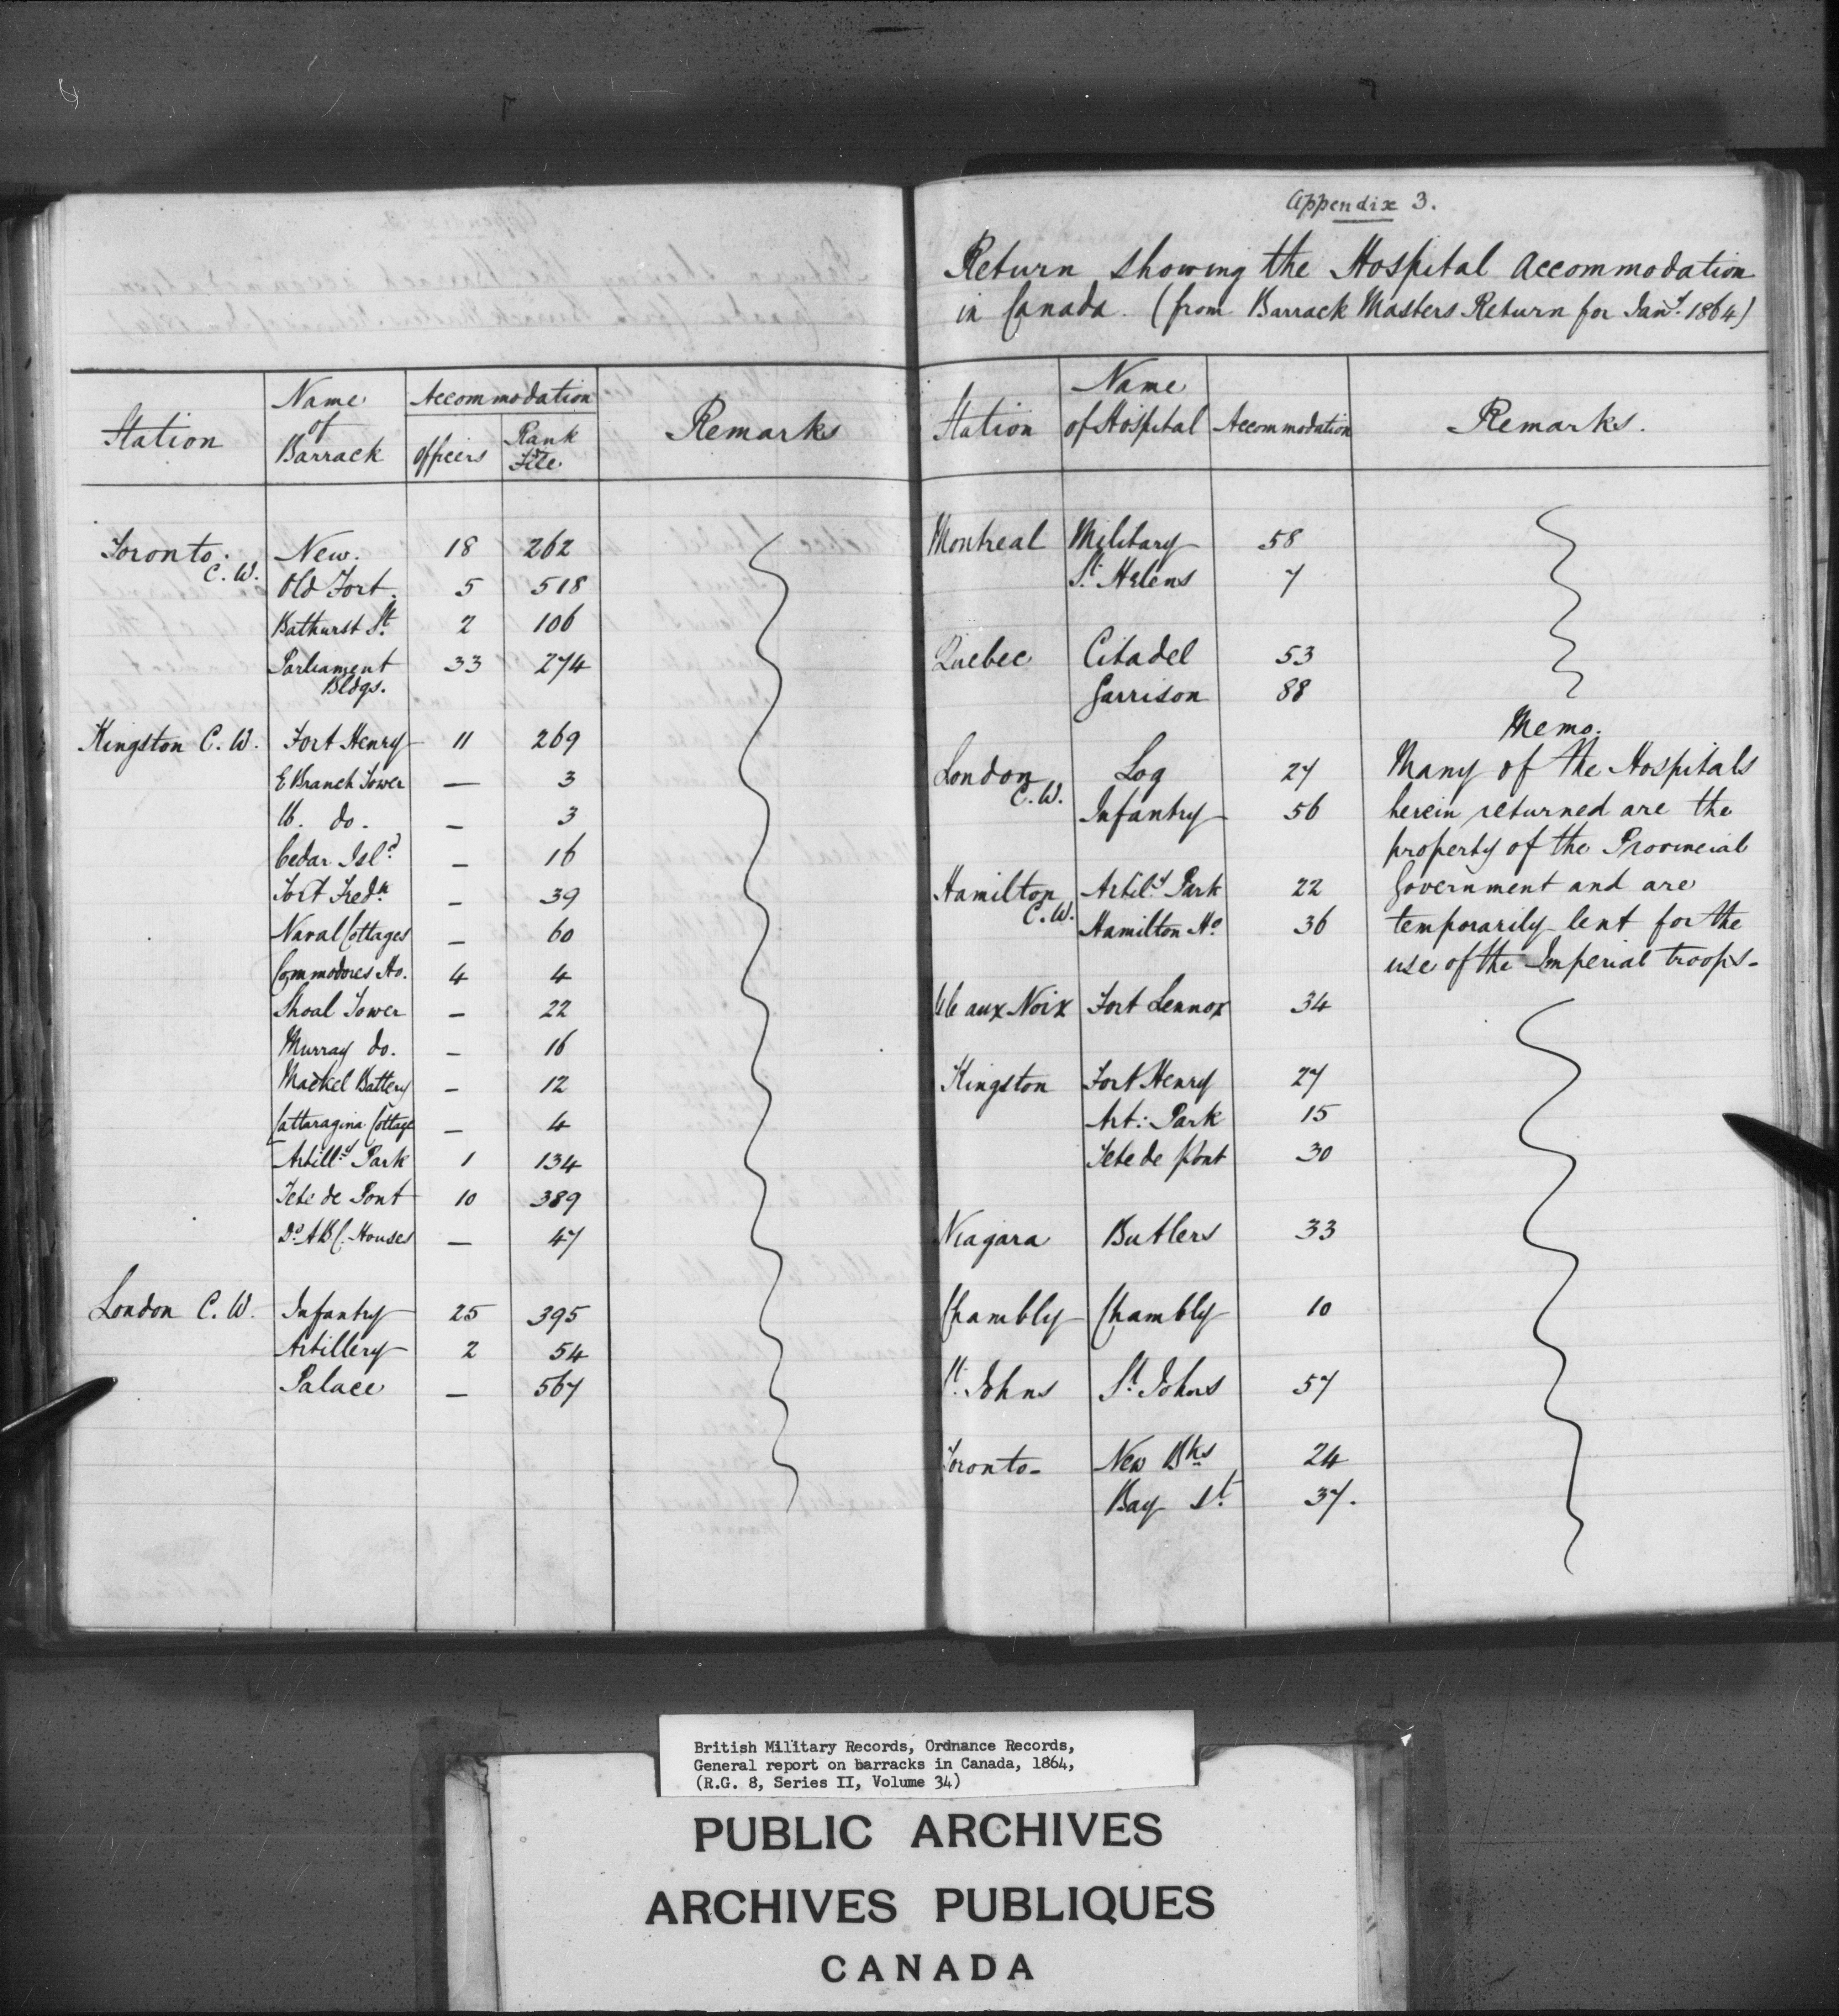 Station
Name of Barrack
Accommodation
Officers
Rank & File
Remarks
Toronto. C.W. New. 18 262
Old Fort. 5 518
Bathurst St. 2 106
Parliament Bldgs. 33 274
Kingston C.W. Fort Henry 11 269
E Branch Tower — 3
W. do. — 3
Cedar Isld. — 16
Fort Fredk. — 39
Naval Cottages — 60
Commodores Ho. 4 4
Shoal Tower — 22
Murray do. — 16
Market Battery — 12
Cattaragina Cottage — 4
Artilly. Park 1 134
Tete de Pont 10 389
Do. ABC. Houses — 47
London C.W. Infantry 25 395
Artillery 2 54
Palace — 567
Appendix 3.
Return showing the Hospital Accommodation
in Canada. (from Barrack Masters Return for Jany. 1864)
Station
Name of Hospital
Accommodation
Remarks.
Montreal Military 58
St. Helens 7
Quebec Citadel 53
Garrison 88
London C.W. Log 27
Infantry 56
Hamilton C.W. Artily. Park 22
Hamilton Ho. 36
Ile aux Noix Fort Lennox 34
Kingston Fort Henry 27
Art: Park 15
Tete de pont 30
Niagara Butlers 33
Chambly Chambly 10
St. Johns St. Johns 57
Toronto- New Bks 24
Bay St. 37.
Memo.
Many of the Hospitals
herein returned are the
property of the Provincial
Government and are
temporarily lent for the
use of the Imperial troops-
British Military Records, Ordnance Records,
General report on barracks in Canada, 1864,
(R.G. 8, Series II, Volume 34)
PUBLIC ARCHIVES
ARCHIVES PUBLIQUES
CANADA